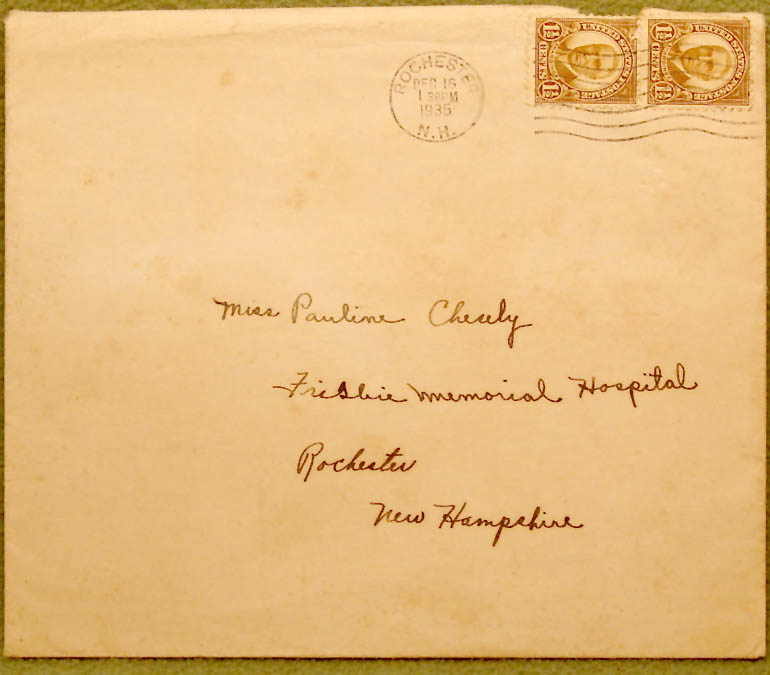 ROCHESTER
DEC 16
1 30PM
1935
N.H.
UNITED STATES POSTAGE
1½ CENTS 1½
UNITED STATES POSTAGE
1½ CENTS 1½
Miss Pauline Chesely
Frisbie Memorial Hospital
Rochester
New Hampshire